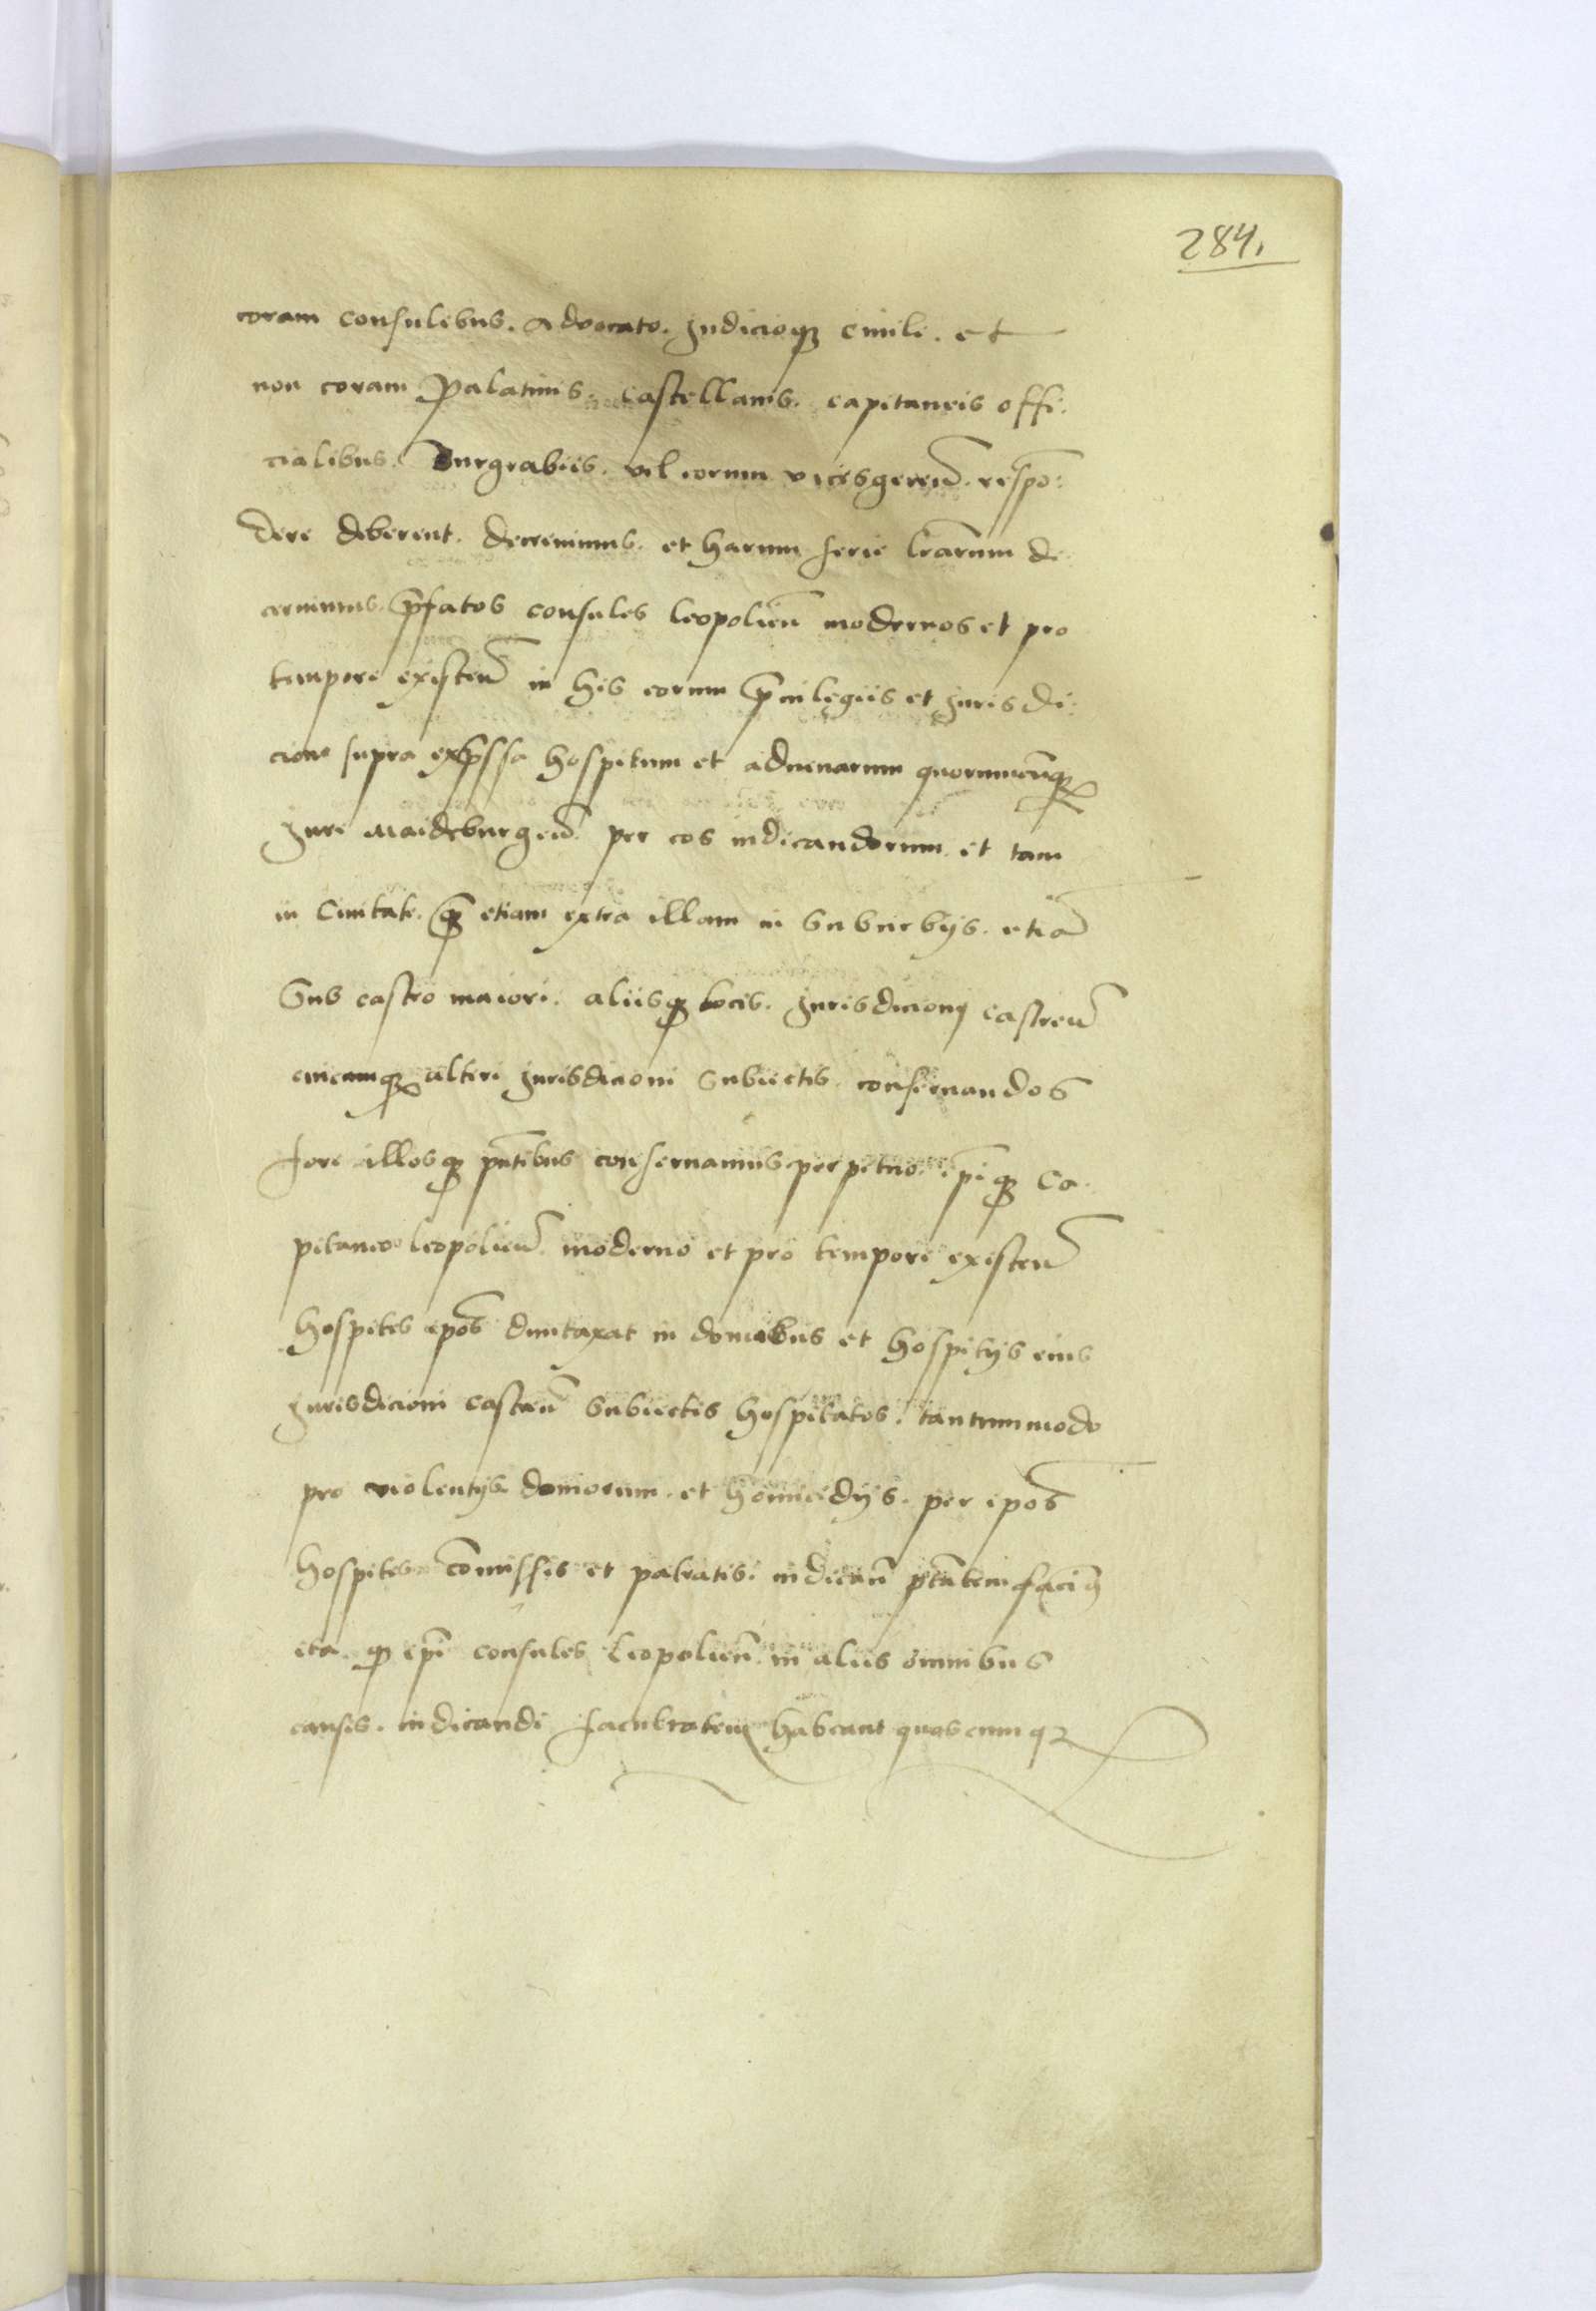 284.
coram consulibus. Advocato. Judicioqꝫ civili. et
non coram Palatinis. castellanis. capitaneis offi:
cialibus. Burgrabiis. vel eorum vicesgereñ. respõ:
dere deberent. decrevimus. et harum serie lr̃arum de
cernimus. p̃fatos consules leopolieñ modernos et pro
tempore existeñ in his eorum p̃vilegiis et Jurisdi:
cione supra exp̃ssa hospitum et advenarum quorumcũqꝫ
Jure Maideburgeñ. per eos iudicandorum. et tam
in Civitate. qꝫ̃ etiam extra illam in suburbijs. etiã
Sub castro maiori. aliisqꝫ locis. Jurisdicionj castreñ
cuicumqꝫ alteri Jurisdicioni subiectis. conservandos
fore illosqꝫ pñtibus conservamus perpetuo. ip̃iqꝫ Ca:
pitaneo leopolieñ. moderno et pro tempore existeñ
hospites ip̃os duntaxat in domibus et hospitijs eius
Jurisdicioni castreñ subiectis hospitatos. tantummodo
pro violentijs domorum. et homicidijs. per ip̃os
hospites cõmissis et patratis. iudicañ ptãtem facim9
ita qꝫ ip̃i consules Leopolieñ. in aliis omnibus
causis. iudicandi facultatem habeant quascumqꝫ